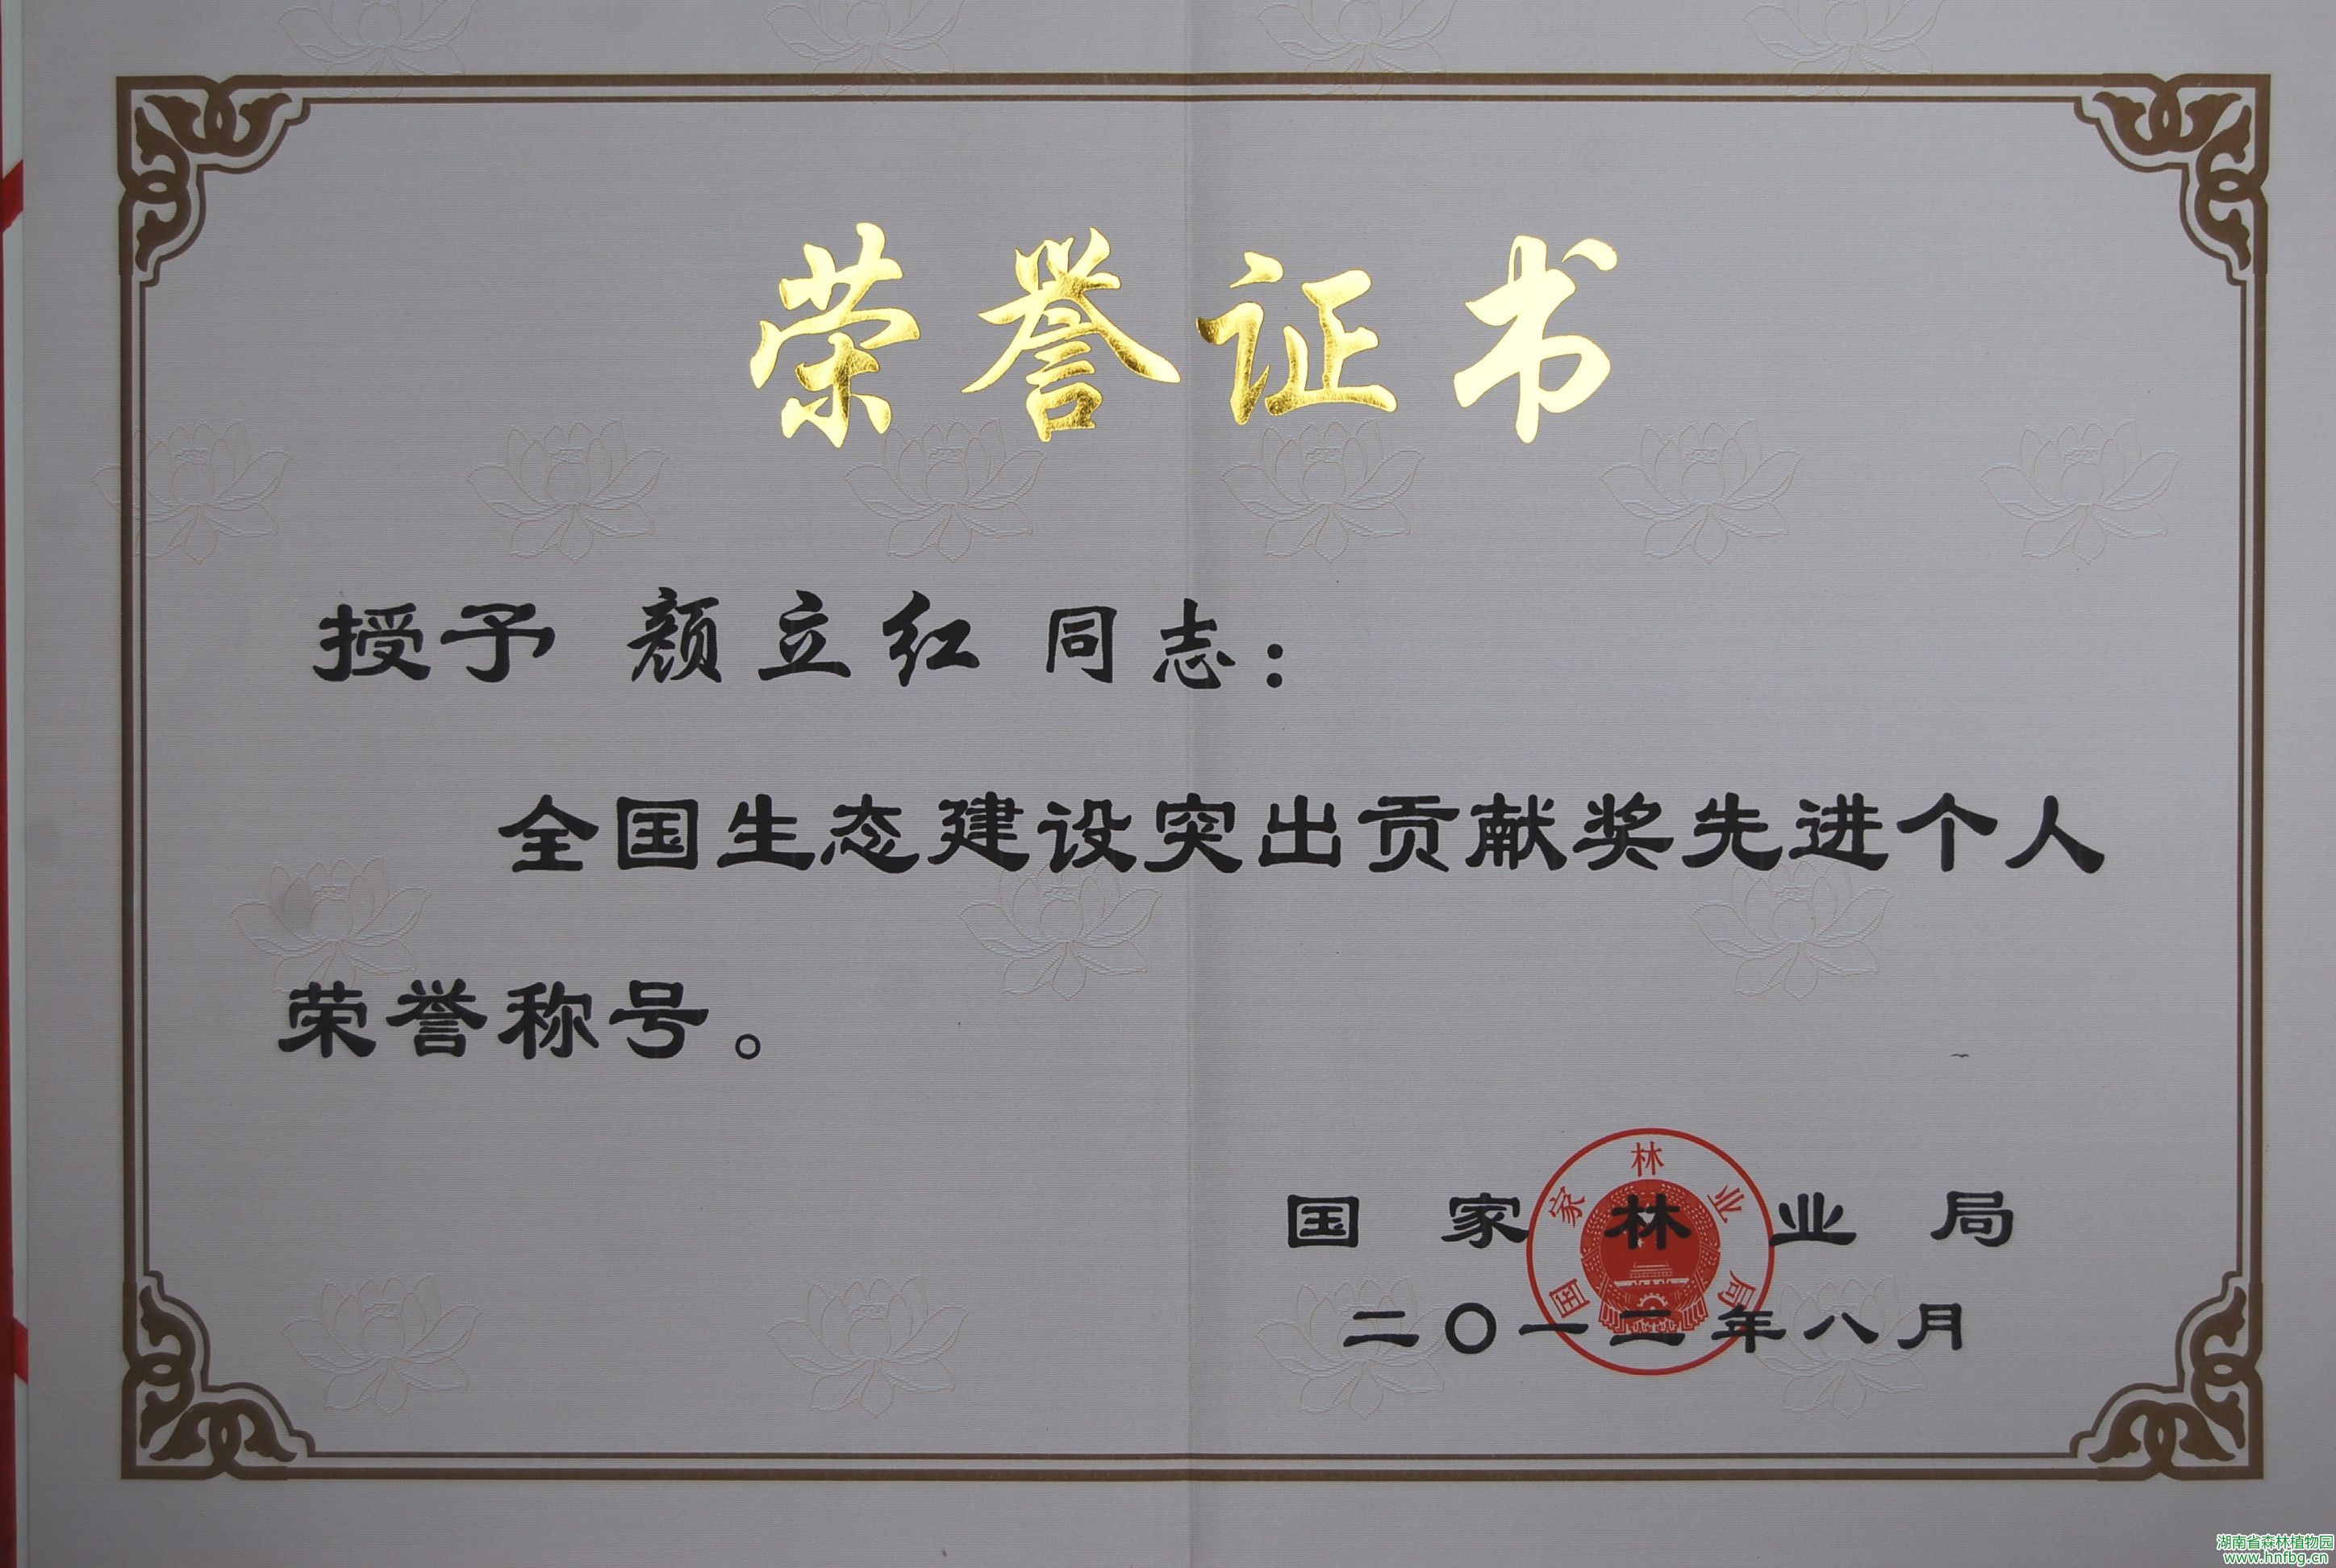 荣誉证书
授予 颜立红 同志：
全国生态建设突出贡献奖先进个人
荣誉称号。
国家林业局
国家林业局
二〇一二年八月
湖南省森林植物园
www.hnfbg.cn